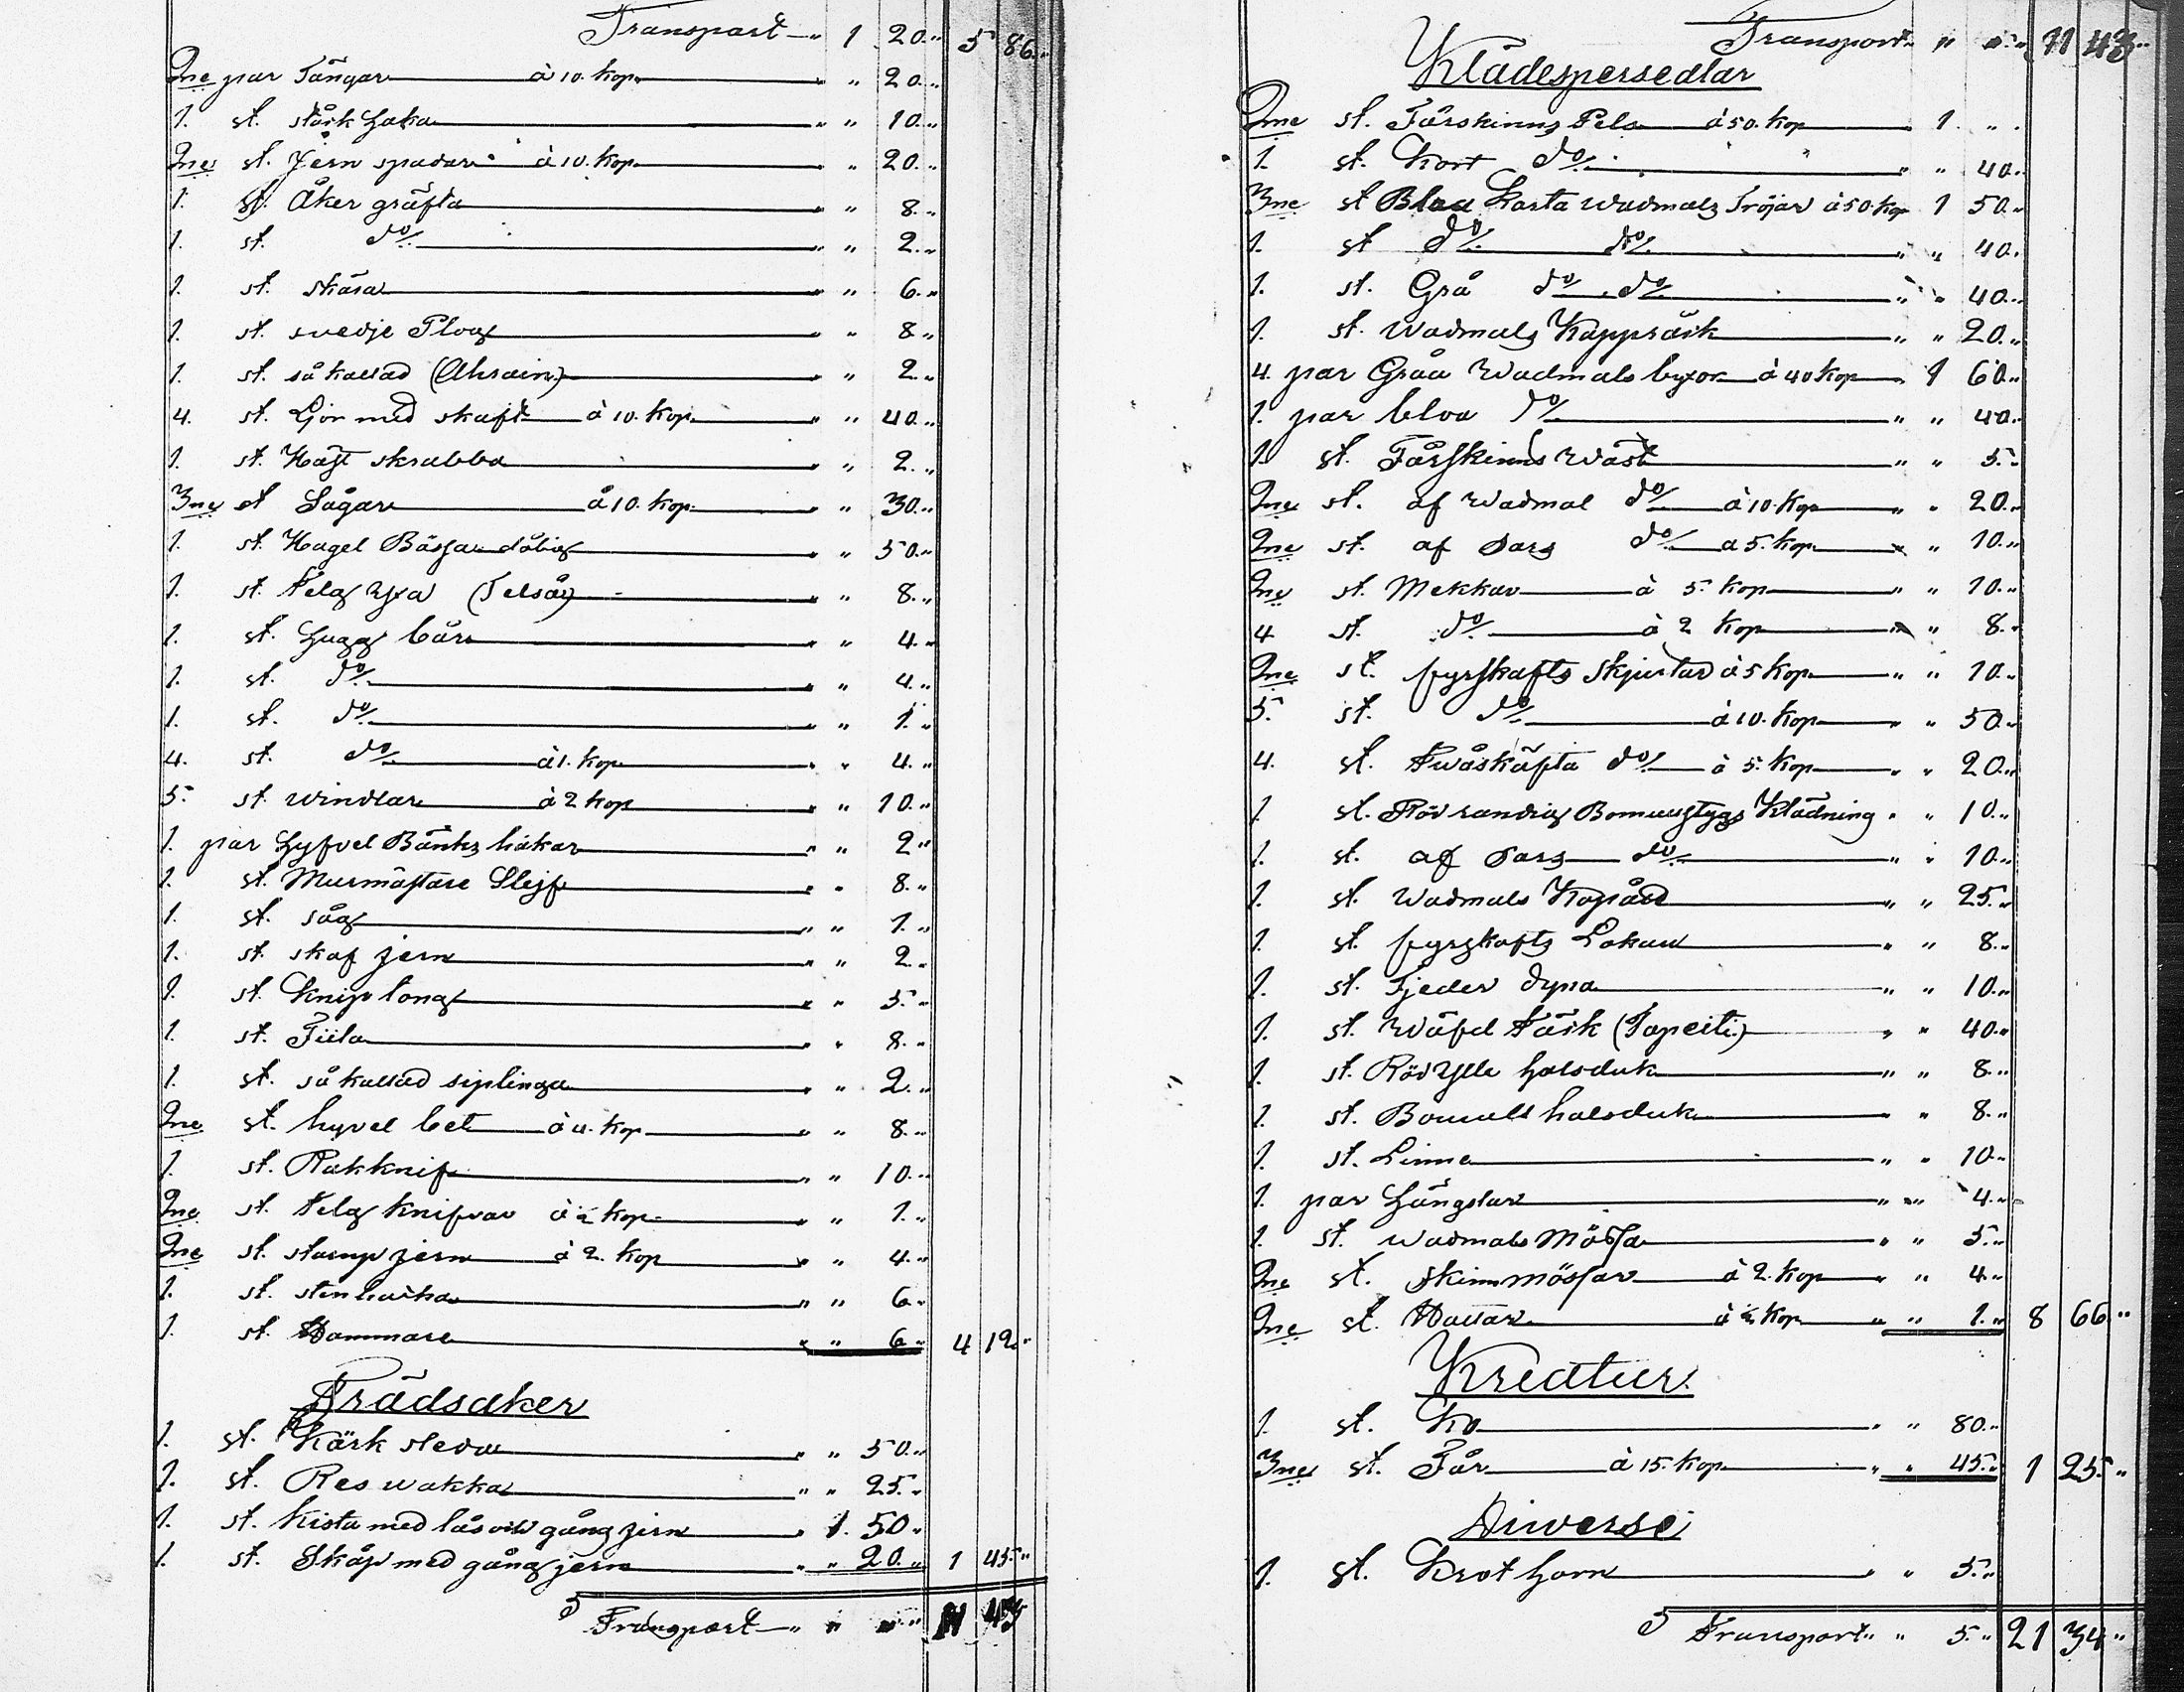 Transport — " 1 20. " 5 86. "
2ne par Tänger — à 10. kop — " " 20. "
1. st. stårk haka — " " 10. "
2ne st. Jern spadar à 10. kop — " " 20. "
1. st. Åker gräfta — " " 8. "
1. st. do/. — " " 2. "
1. st. skära — " " 6. "
1. st. svedje Plog — " " 8. "
1. st. så kallad (Ahrain) — " " 2. "
4. st. Ljor med skaft — à 10. kop. — " " 40. "
1. st. Häst skrabba — " " 2. "
3ne st Sågar — à 10. kop — " " 30. "
1. st. Hagel Bössa dålig — " " 50. "
1. st. Telg yxa (Telsö) — " " 8. "
1. st. Hugg bår — " " 4. "
1. st. do/. — " " 4. "
1. st. do/. — " " 1. "
4. st. do/. — à 1. kop — " " 4. "
5. st. windlar — à 2 kop — " " 10. "
1. par Hyfvel Bänks hakar — " " 2 "
1. st. Murmästare Slejf — " " 8. "
1. st. såg — " " 1. "
1. st. skaf jern — " " 2. "
1. st. Knip tong — " " 5. "
1. st. Fiila — " " 8. "
1. st. så kallad siplinga — " " 2. "
2ne st. hyvel bet — à 4. kop — " " 8. "
1. st. Rakknif — " " 10. "
2ne st. Telg knifvar à ½ kop — " " 1. "
2ne st. stamp jern — à 2. kop — " " 4. "
1. st. stenhacka — " " 6. "
1. st. Hammare — " " 6. " 4 12. "
Trädsaker
1. st. Kärk sleda — " " 50. "
1. st. Res wakka — " " 25. "
1. st. Kista med lås och gång jern — " 1. 50. "
1. st. Skåp med gång jern — " " 20. " 1 45. "
Transport — " " " " 11 43
Transport " " " " 11 43 "
Klädespersedlar
2ne st. Fårskinns Pels — à 50. kop — 1. " "
1. st. Kort do/. — " " 40. "
3ne st Blaa Korta wadmals Tröjar à 50. kop 1 50. "
1. st do/. do/. — " " 40. "
1. st. Grå do/. do/. — " " 40. "
1. st. Wadmals Kappräck — " " 20. "
4. par Gråa Wadmals byxor — à 40 kop — 1 60. "
1. par bloa do/. — " " 40. "
1. st. Fårskinns Wäst — " " 5. "
2ne st. af Wadmal do/. — à 10. kop — " " 20. "
2ne st. af Sars do/. — à 5. kop — " " 10. "
2ne st. Mekkar — à 5. kop — " " 10. "
4 st. do/. — à 2 kop — " " 8. "
2ne st. fyrskafts Skjurtar à 5 kop — " " 10. "
5. st. do/. — à 10. kop — " " 50. "
4. st. Twåskäfta do/. — à 5. kop — " " 20. "
1. st. Röd randig Bomullstygs Klädning " " 10. "
1. st. af Sars — do/. — " " 10. "
1. st. Wadmals — " " 25. "
1. st. fyrskafts Lakan — " " 8. "
1. st. Fjeder dyna — " " 10. "
1. st. Wäfd Täck (Tapeiti.) — " " 40. "
1. st. Röd Ylle halsduk — " " 8. "
1. st. Bomulls halsduk — " " 8. "
1. st. Linne — " " 10. "
1. par Hängslar — " " 4. "
1. st. Wadmals Mössa — " " 5. "
2ne st. Skinnmössar — à 2. kop — " " 4. "
2ne st. Hattar — à ½ kop — " " 1. " 8 66. "
Kreatur.
1. st. Ko — " " 80. "
3ne st. Får — à 15. kop — " " 45. " 1 25. "
Diverse
1. st. Krot horn — " " 5. "
Transport " " 5. " 21 34 "